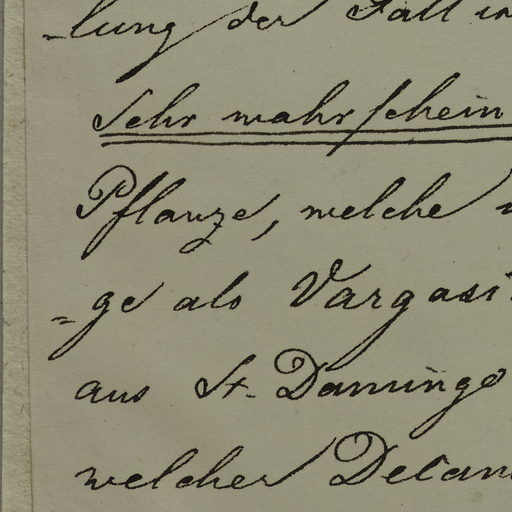 -lung der Fall in
Sehr wahrschein
Pflanze, welche
=ge als Vargasi
aus St. Domingo
welcher Decan